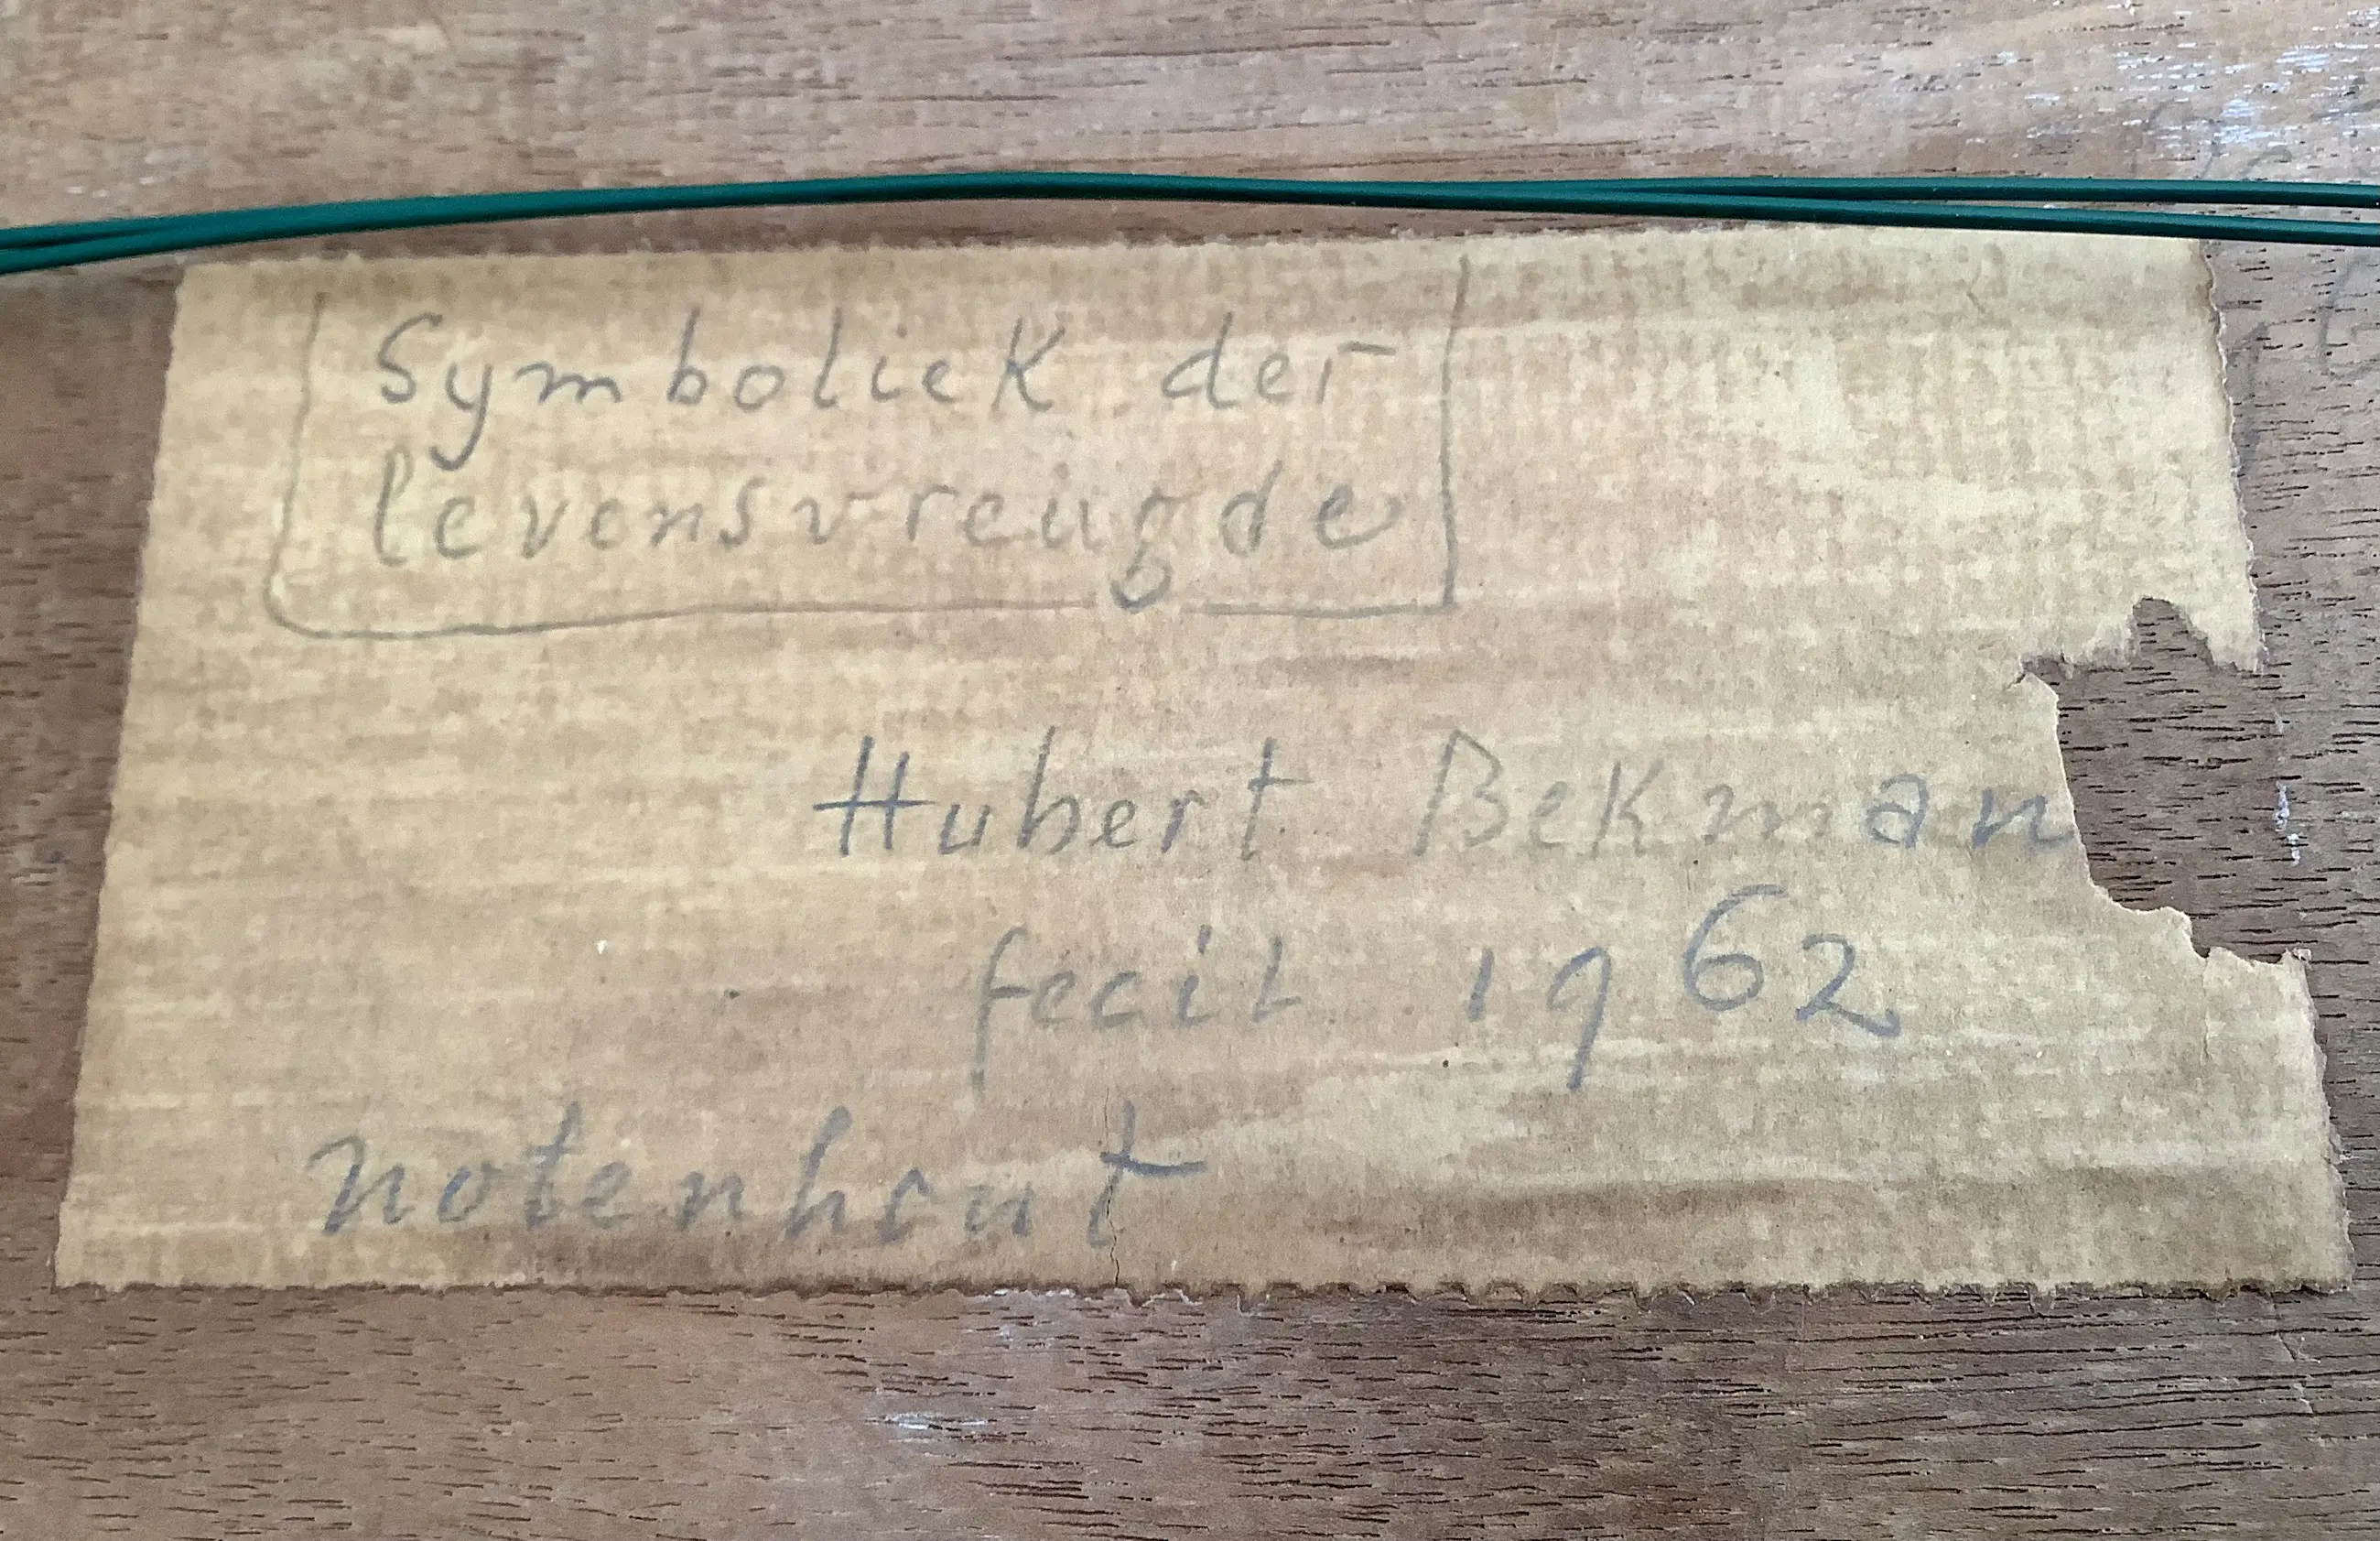 Symboliek der
levensvreugde
Hubert Bekman
fecit 1962
notenhout